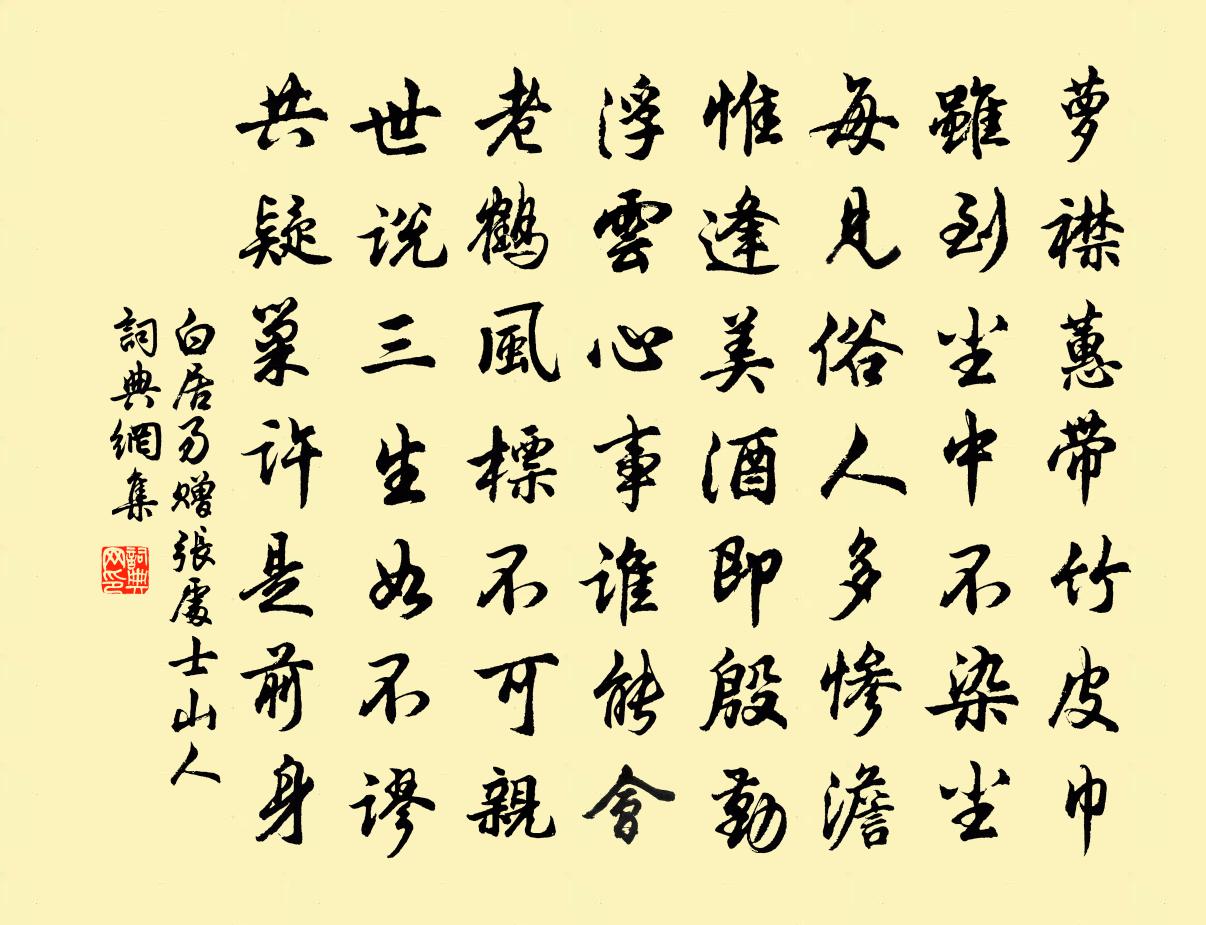 萝襟蕙带竹皮巾
雖到尘中不染尘
每見俗人多惨澹
惟逢美酒即殷勤
浮雲心事谁能會
老鶴風標不可親
世说三生如不謬
共疑巢许是前身
白居易赠張處士山人
詞典網集
詞典网印